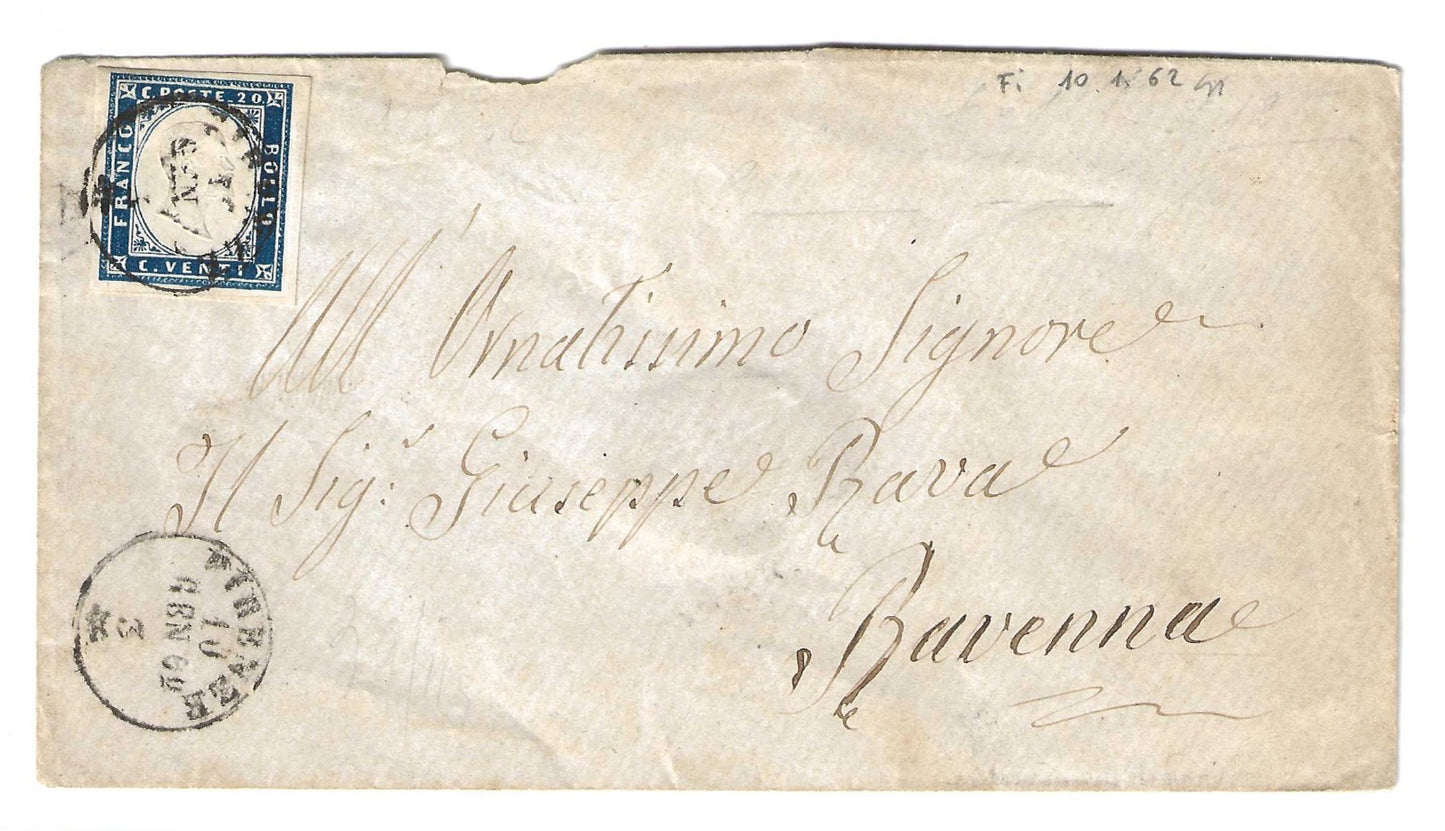 Fi 10.1.62
C. POSTE. 20.
FRANCO
BOLLO
C. VENTI
GEN
All' Ornatissimo Signore
Il Sig.r Giuseppe Rava
Ravenna
FIRENZE
10
GEN 62
3